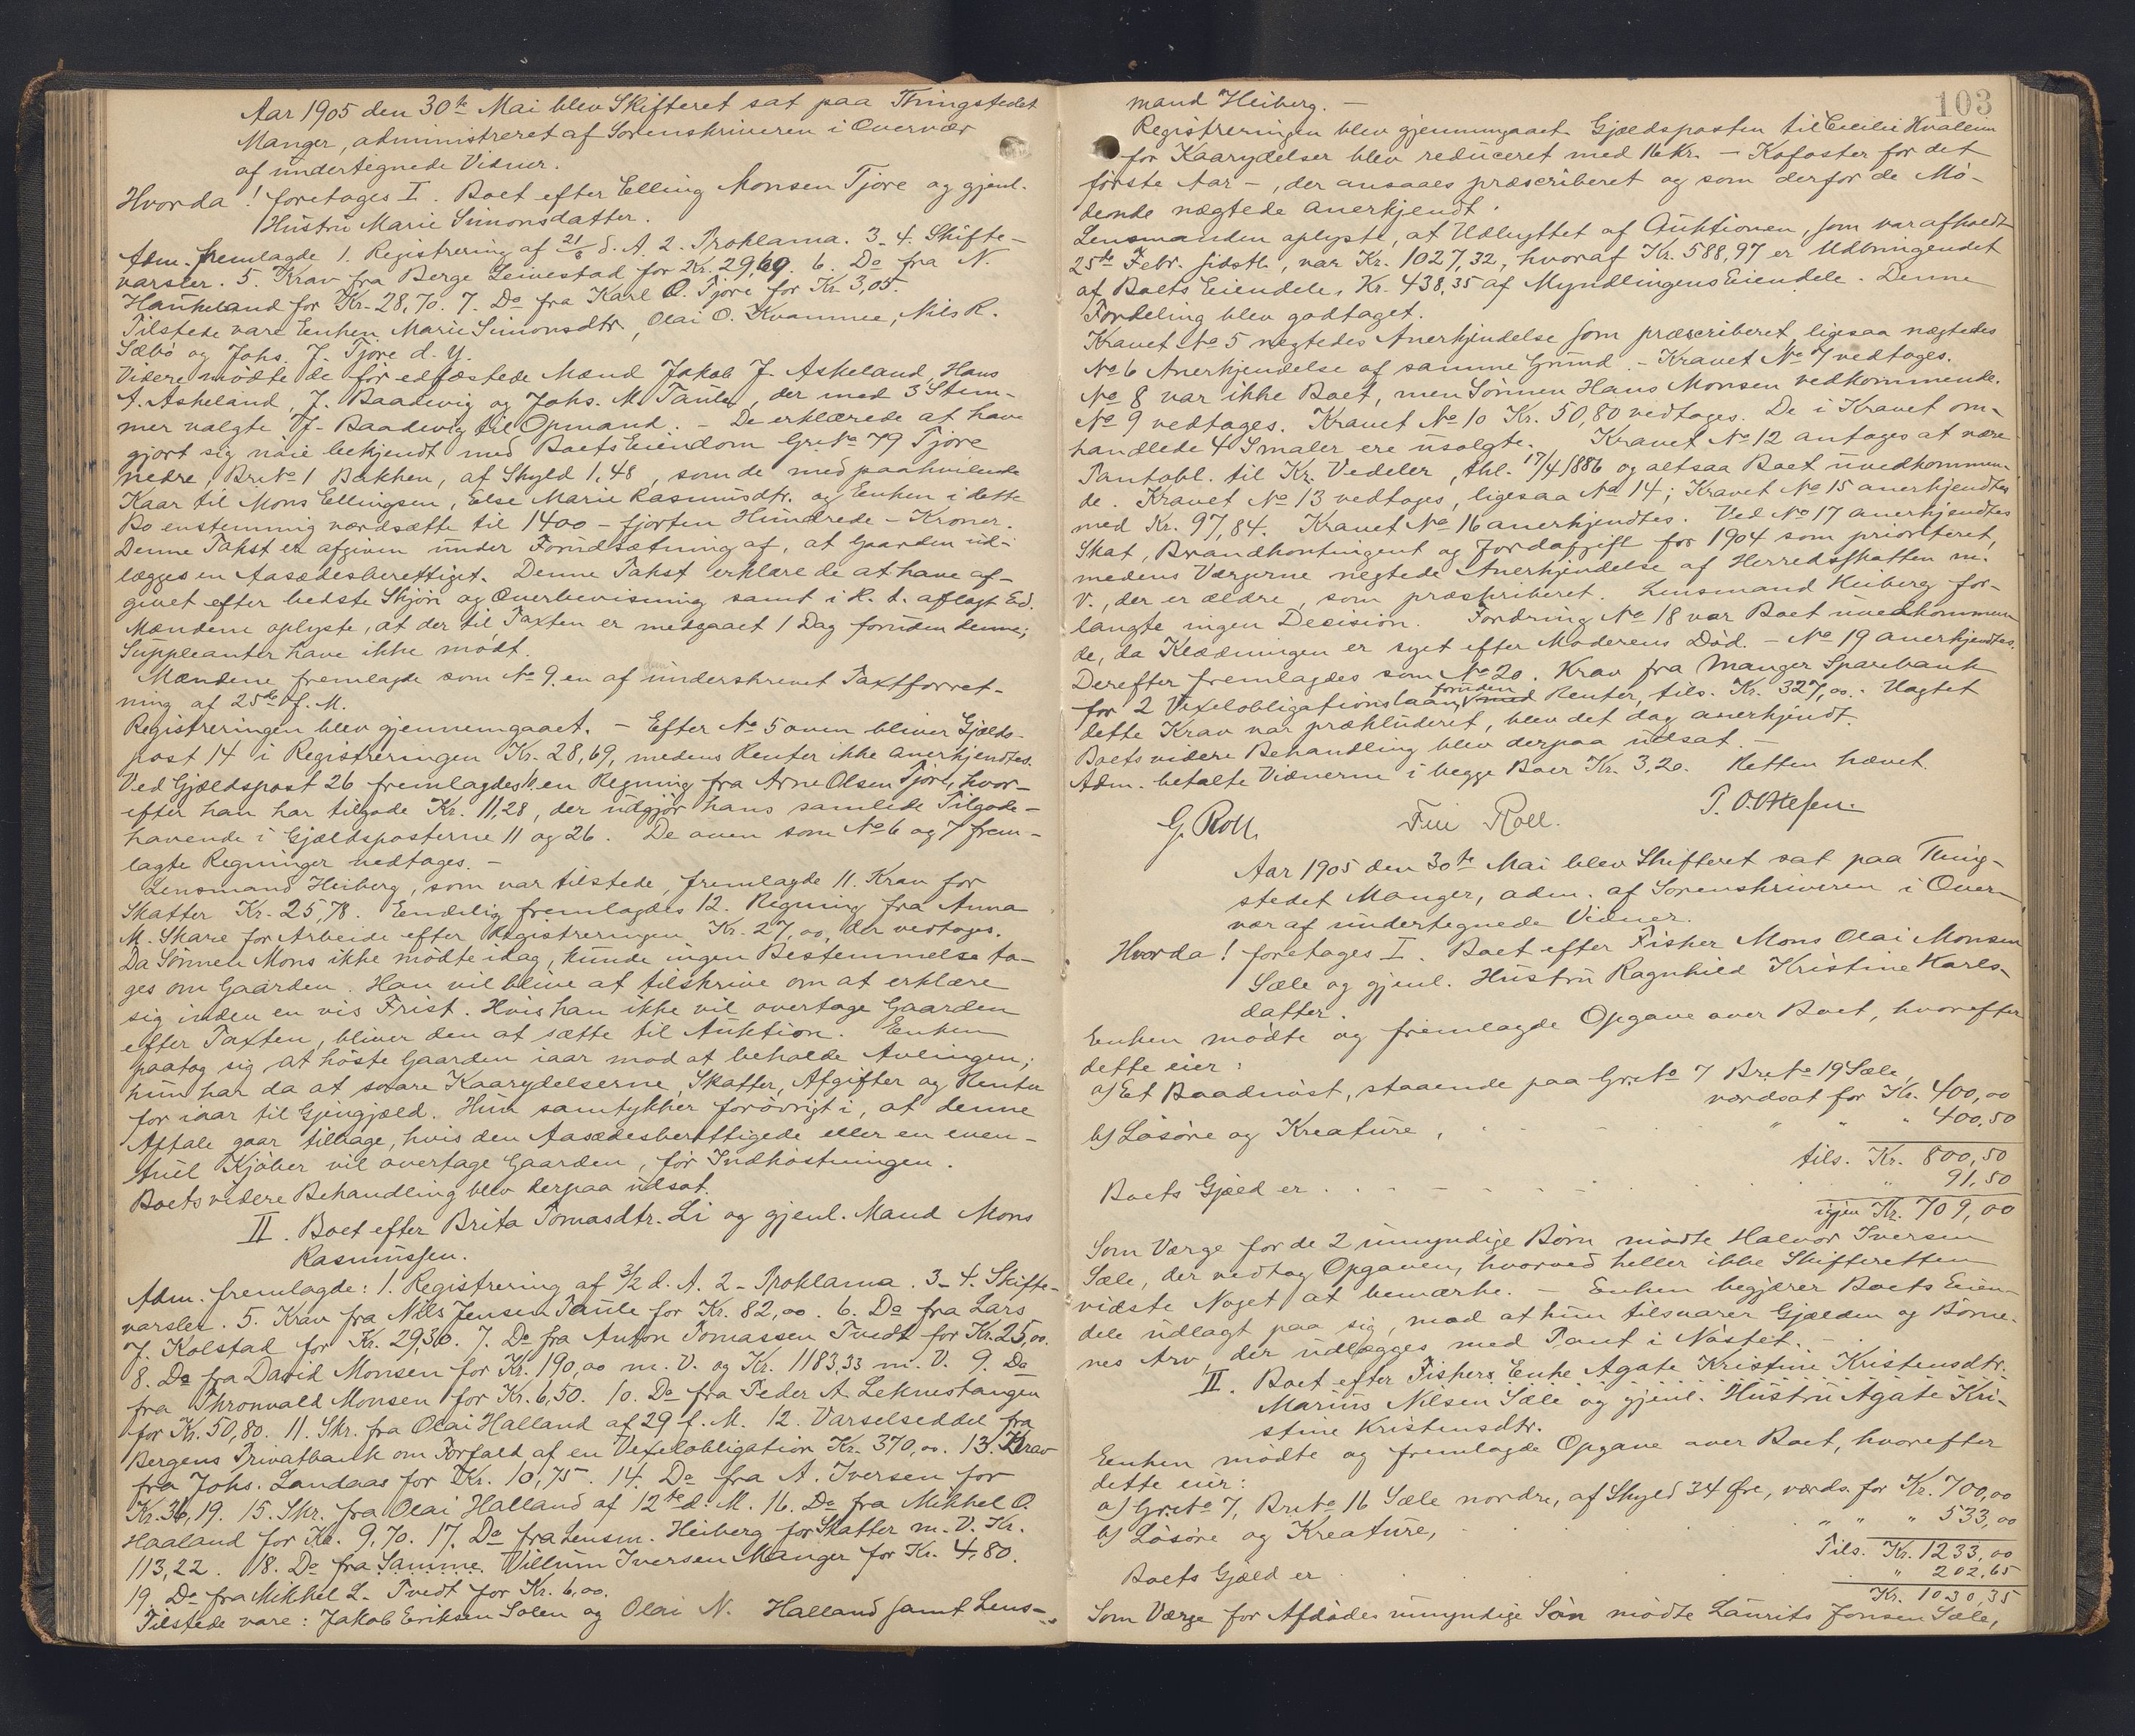 Aar 1905 den 30te Mai blev Skifteret sat paa Thingstedet
Manger, administreret af Sorenskriveren i Overvær
af undertegnede Vidner.
Hvorda! foretages I. Boet efter Elling Monsen Tjore og gjenl.
Hustru Marie Simonsdatter.
Adm. fremlagde 1. Registrering af d. A. 2. Proklama. 3-4. Skifte-
varsler. 5. Krav fra Berge Leivestad for Kr. 29,69. 6. Do fra N
Haukeland for Kr. 28,70. 7. Do fra Karl O. Tjore for Kr 3,05.
Tilstede vare Enken Marie Simonsdtr, Olai O. Kvamme, Nils R.
Sæbö og Johs. J. Tjore d. y.
Videre mödte de för edfæstede Mænd Jakob J. Askeland, Hans
A. Askeland, J. Baadevig og Johs. M. Taule, der med 3 Stem-
mer valgte J. Baadevig til Opmand. - De erklærede at have
gjort sig nöie bekjendt med Boets Eiendom Gr. No 79 Tjore
nedre, Br. No 1 Bakken, af Skyld 1,48, som de med paahvilende
Kaar til Mons Ellingsen, Else Marie Rasmusdtr. og Enken i dette
Bo enstemmig værdsætte til 1400 - fjorten Hundrede - Kroner.
Denne Takst er afgiven under Forudsætning af, at Gaarden ud-
lægges en Aasædesberettiget. Denne Takst erklærede at have af-
givet efter bedste Skjön og Overbevisning samt i H. t. aflagt Ed.
Mændene oplyste, at der til Taxten er medgaaet 1 Dag foruden denne;
Suppleanter have ikke mödt.
Mændene fremlagde som No 9 en af dem underskrevet Taxtforret-
ning af 25de f. M.
Registreringen blev gjennemgaaet. - Efter No 5 oven bliver Gjælds-
post 14 i Registreringen Kr. 28,69, medens Renter ikke anerkjendtes.
Ved Gjældspost 26 fremlagdes en Regning fra Arne Olsen Tjore, hvor-
efter han har tilgode Kr. 11,28, der udgjör hans samlede Tilgode-
havende i Gjældsposterne 11 og 26. De oven som No 6 og 7 frem-
lagte Regninger vedtoges. -
Lensmand Heiberg, som var tilstede, fremlagde 11. Krav for
Skatter Kr. 25,78. Endelig fremlagdes 12. Regning fra Anna
M. Skare for Arbeide efter Registreringen Kr. 27,00, der vedtoges.
Da Sönnen Mons ikke mödte idag, kunde ingen Bestemmelse ta-
ges om Gaarden. Han vil blive at tilskrive om at erklære
sig inden en vis Frist. Hvis han ikke vil overtage Gaarden
efter Taxten, bliver den at sætte til Auktion. Enken
paatog sig at höste Gaarden iaar mod at beholde Avlingen;
hun har da at svare Kaarydelserne, Skatter, Afgifter og Renter
for iaar til Gjengjæld. Hun samtykker forövrigt i, at denne
Aftale gaar tilbage, hvis den Aasædesberettigede eller en even-
tuel Kjöber vil overtage Gaarden, för Indhöstningen.
Boets videre Behandling blev derpaa udsat.
II. Boet efter Brita Tomasdtr. Li og gjenl. Mand Mons
Rasmussen.
Adm. fremlagde: 1. Registrering af 3/2 d. A. 2 - Proklama. 3-4. Skifte-
varsler. 5. Krav fra Nils Jensen Taule for Kr. 82,00. 6. Do fra Lars
J. Kolstad for Kr. 29,30. 7. Do fra Anton Tomassen Tvedt for Kr. 25,00.
8. Do fra David Monsen for Kr. 190,00 m. V. og Kr. 1183,33 m. V. 9. Do
fra Thronvald Monsen for Kr. 6,50. 10. Do fra Peder A. Leknestangen
for Kr. 50,80. 11. Skr. fra Olai Halland af 29 f. M. 12. Varselseddel fra
Bergens Privatbank om Forfald af en Vexelobligation Kr. 370,00. 13. Krav
fra Johs. Landaas for Kr. 10,75. 14. Do fra A. Iversen for
Kr. 36,19. 15. Skr. fra Olai Halland af 12te d. M. 16. Do fra Mikkel O.
Haaland for Kr. 9,70. 17. Do fra Lensm. Heiberg for Skatter m. V. Kr.
113,22. 18. Do fra Samme. Villum Iversen Manger for Kr. 4,80.
19. Do fra Mikkel L. Tvedt for Kr. 6,00.
Tilstede vare: Jakob Eriksen Solen og Olai N. Halland samt Lens-
103
mand Heiberg. -
Registreringen blev gjennemgaaet. Gjældsposten til Cecilie Kvalem
for Kaarydelser blev reduceret med 16 Kr. - Kofoster for det
förste Aar -, der ansaaes præscriberet og som derfor de Mö-
dende nægtede Anerkjendt.
Lensmanden oplyste, at Udbyttet af Auktionen, som var afholdt
25de Febr. sidstl., var Kr. 1027,32, hvoraf Kr. 588,97 er Udbringendet
af Boets Eiendele, Kr. 438,35 af Myndlingens Eiendele. Denne
Fordeling blev godtaget.
Kravet No 5 nægtedes Anerkjendelse som præscriberet, ligesaa nægtedes
No 6 Anerkjendelse af samme Grund. - Kravet No 7 vedtoges.
No 8 var ikke Boet, men Sönnen Hans Monsen vedkommende.
No 9 vedtages. Kravet No 10 Kr. 50,80 vedtoges. De i Kravet om-
handlede 4 Smaler ere usolgte. Kravet No 12 antages at være
Pantobl. til Kr. Vedeler, thl. 17/4 1886 og altsaa Boet uvedkommen-
de. Kravet No 13 vedtoges, ligesaa No 14; Kravet No 15 anerkjendtes
med Kr. 97,84. Kravet No 16 anerkjendtes. Ved No 17 anerkjendtes
Skat, Brandkontingent og Jordafgift for 1904 som prioriteret,
medens Værgerne negtede Anerkjendelse af Herredsskatten m.
V., der er ældre, som præskriberet. Lensmand Heiberg for-
langte ingen Decision. Fordring No 18 var Boet uvedkommen-
de, da Klædningen er syet efter Moderens Död. - No 19 anerkjendtes.
Derefter fremlagdes som No 20. Krav fra Manger Sparebank
for 2 Vexelobligationslaan foruden Renter, tils. Kr. 327,00. Uagtet
dette Krav var prækluderet, blev det dog anerkjendt.
Boets videre Behandling blev derpaa udsat. -
Adm. betalte Vidnerne i begge Boer Kr. 3,20. Retten hævet.
G. Roll. Roll. P. O. Ottesen.
Aar 1905 den 30te Mai blev Skifteret sat paa Thing-
stedet Manger, adm. af Sorenskriveren i Over-
vær af undertegnede Vidner.
Hvorda! foretages I. Boet efter Fisker Mons Olai Monsen
Sæle og gjenl. Hustru Ragnhild Kristine Karls-
datter.
Enken mödte og fremlagde Opgave over Boet, hvorefter
dette eier:
a) Et Baadnöst, staaende paa Gr. No 7 Br. No 19 Sæle,
værdsat for Kr. 400,00
b) Lösöre og Kreature, " " " 400,50
tils. Kr. 800,50
Boets Gjæld er " 91,50
igjen Kr. 709,00
Som Værge for de 2 umyndige Börn mödte Halvor Iversen
Sæle, der vedtog Opgaven, hvorved heller ikke Skifteretten
vidste Noget at bemærke. - Enken begjærer Boets Eien-
dele udlagt paa sig, mod at hun tilsvarer Gjælden og Börne-
nes Arv, der udlægges med Pant i Nöstet. -
II. Boet efter Fiskers Enke Agate Kristine Kristensdtr.
Marius Nilsen Sæle og gjenl. Hustru Agate Kri-
stine Kristensdtr.
Enken mödte og fremlagde Opgave over Boet, hvorefter
dette eier:
a) Gr. No 7, Br. No 16 Sæle nordre, af Skyld 34 Öre, værds. for Kr. 700,00
b) Lösöre og Kreature, " " " 533,00
Tils. Kr. 1233,00
Boets Gjæld er " 202,65
Kr. 1030,35
Som Værge for Afdödes umyndige Sön mödte Laurits Jonsen Sæle,